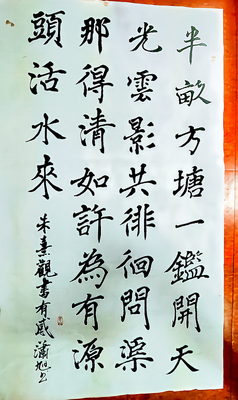 半畝方塘一鑑開天
光雲影共徘徊問渠
那得清如許為有源
頭活水來
朱熹觀書有感 瀟旭書